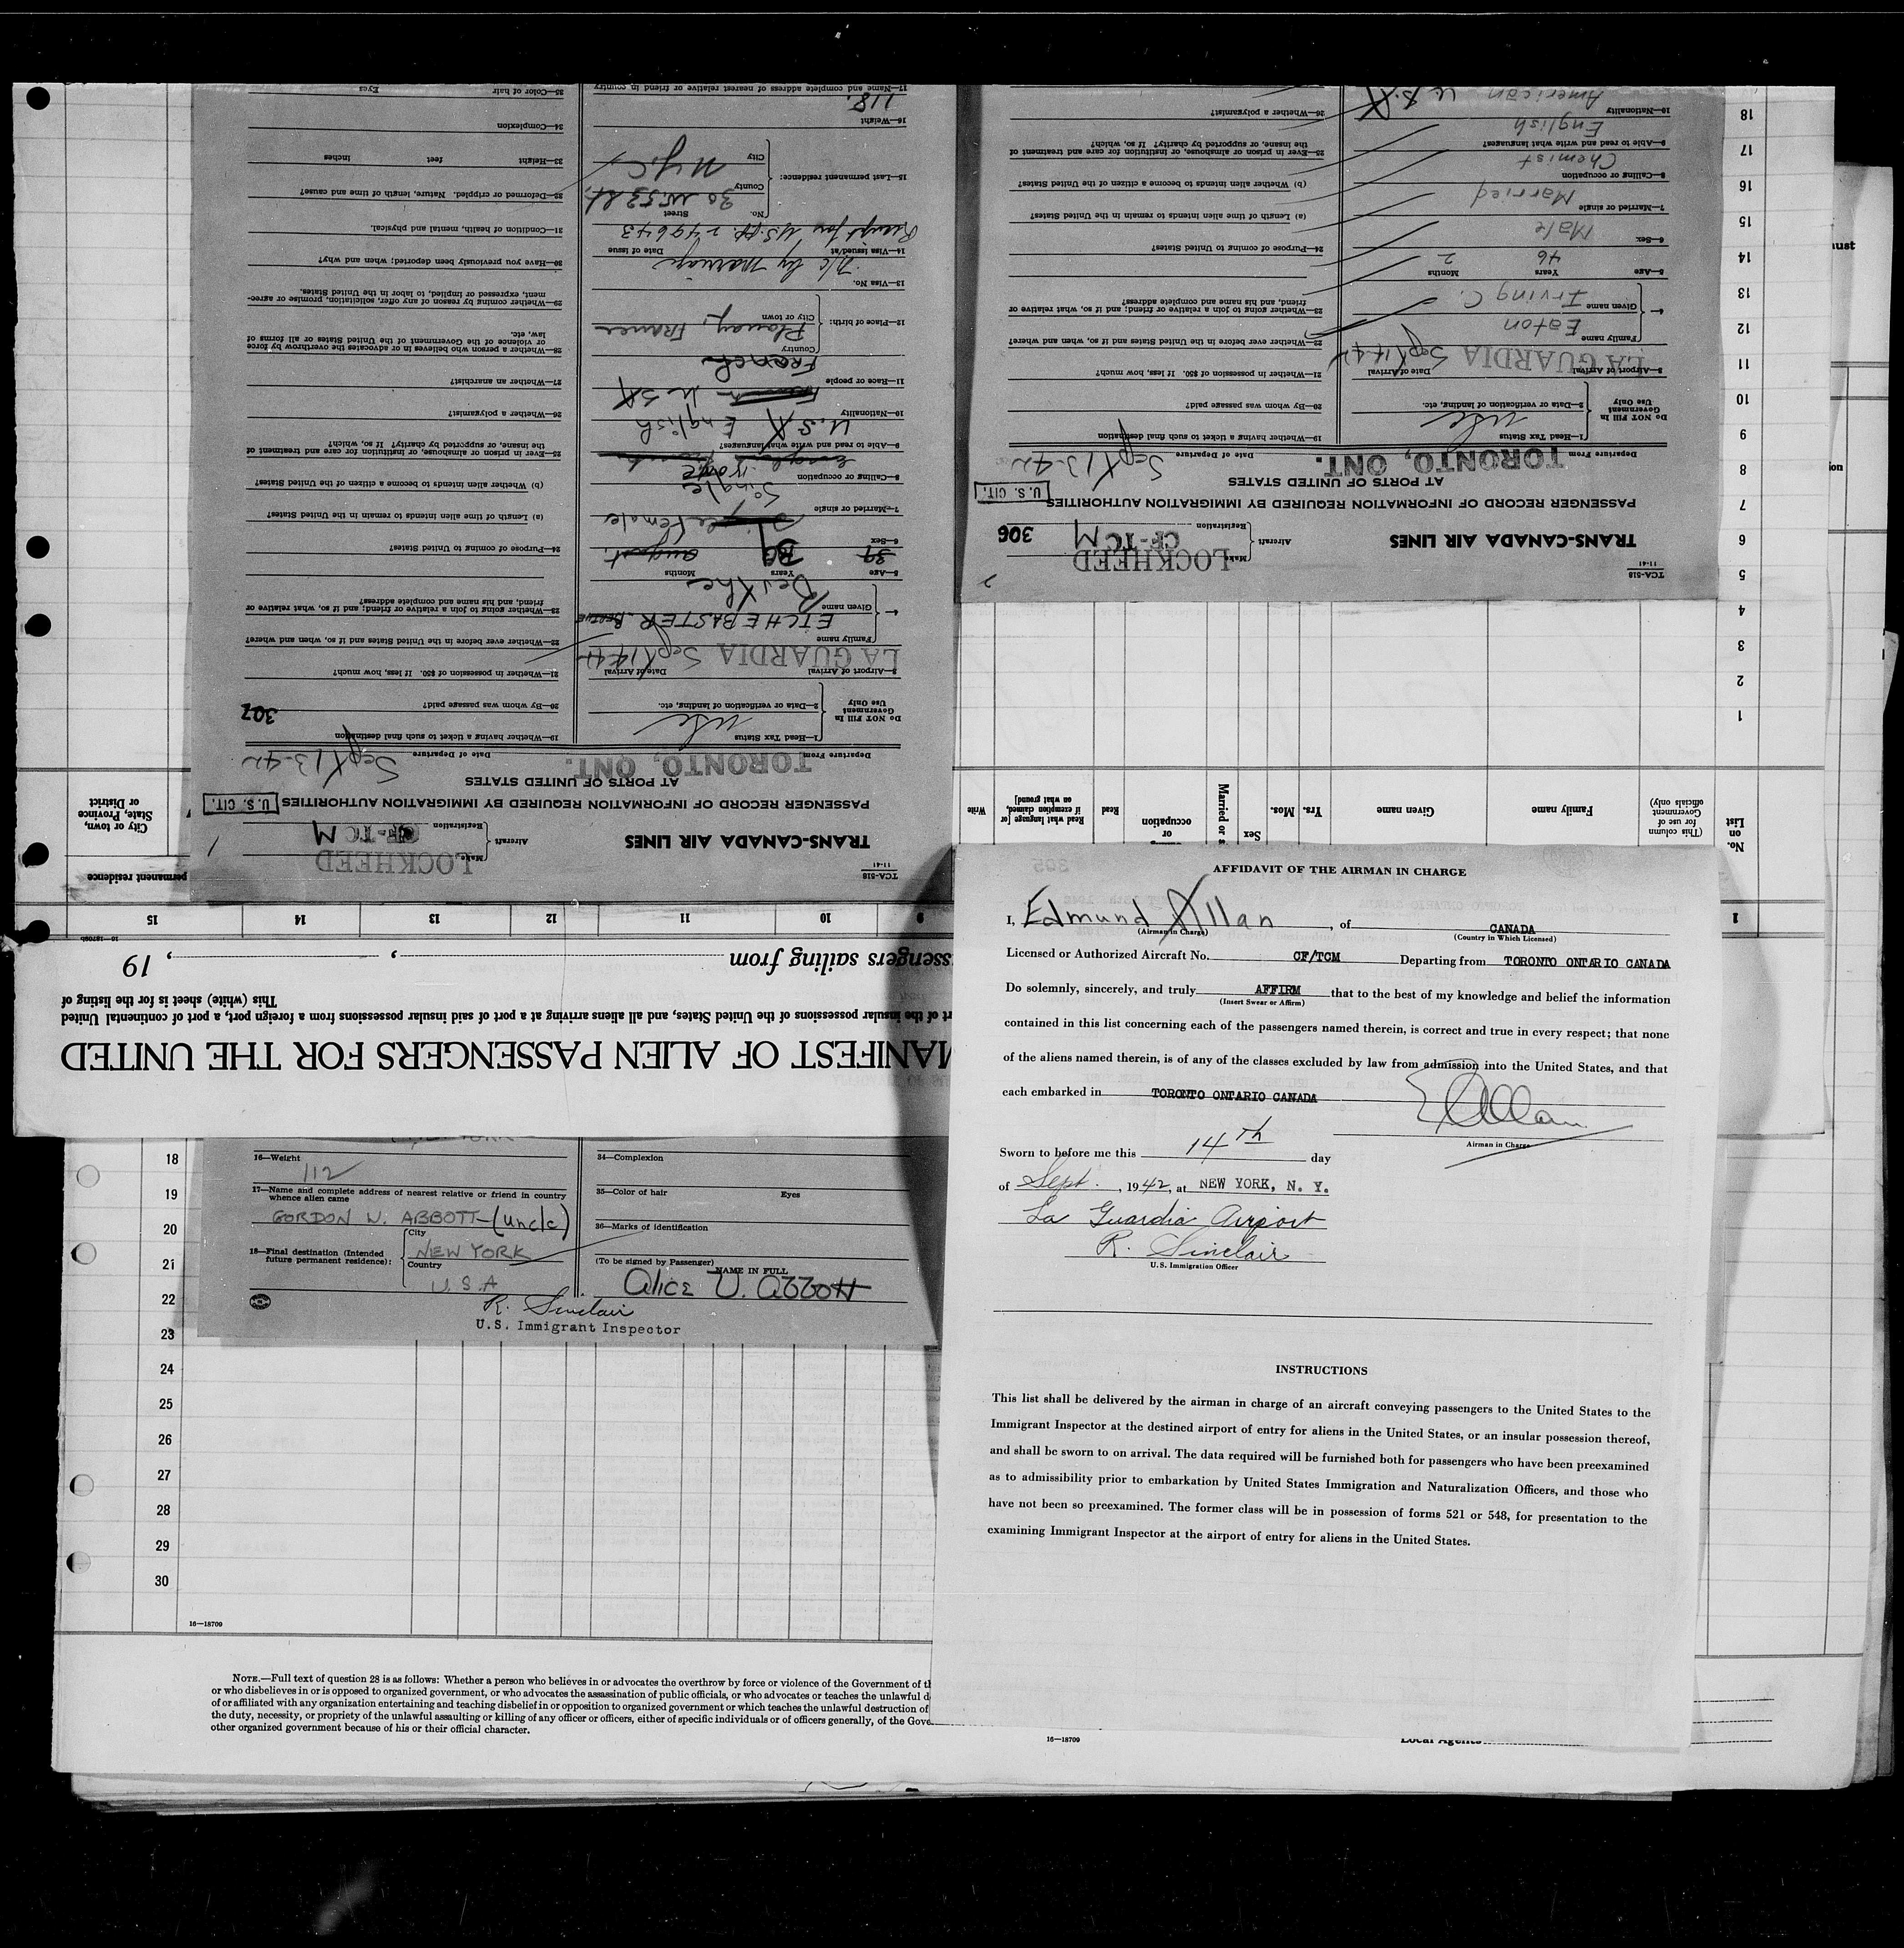 AFFIDAVIT OF THE AIRMAN IN CHARGE
I, Edmund Allan, of CANADA
(Airman in Charge) (Country in Which Licensed)
Licensed or Authorized Aircraft No. CF/TCM Departing from TORONTO ONTARIO CANADA
Do solemnly, sincerely, and truly AFFIRM that to the best of my knowledge and belief the information
(Insert Swear or Affirm)
contained in this list concerning each of the passengers named therein, is correct and true in every respect; that none
of the aliens named therein, is of any of the classes excluded by law from admission into the United States, and that
each embarked in TORONTO ONTARIO CANADA
E Allan
Airman in Charge
Sworn to before me this 14th day
of Sept., 1942, at NEW YORK, N. Y.
La Guardia Airport
R. Sinclair
U.S. Immigration Officer
INSTRUCTIONS
This list shall be delivered by the airman in charge of an aircraft conveying passengers to the United States to the
Immigrant Inspector at the destined airport of entry for aliens in the United States, or an insular possession thereof,
and shall be sworn to on arrival. The data required will be furnished both for passengers who have been preexamined
as to admissibility prior to embarkation by United States Immigration and Naturalization Officers, and those who
have not been so preexamined. The former class will be in possession of forms 521 or 548, for presentation to the
examining Immigrant Inspector at the airport of entry for aliens in the United States.
16—18709
Local Agents
16—Weight
112
17—Name and complete address of nearest relative or friend in country
whence alien came
GORDON W. ABBOTT—(uncle)
18—Final destination (Intended
future permanent residence):
City
NEW YORK
Country
U.S.A
34—Complexion
35—Color of hair Eyes
36—Marks of identification
(To be signed by Passenger)
NAME IN FULL
Alice V. Abbott
R. Sinclair
U.S. Immigrant Inspector
18
19
20
21
22
23
24
25
26
27
28
29
30
16—18709
NOTE.—Full text of question 28 is as follows: Whether a person who believes in or advocates the overthrow by force or violence of the Government of
or who disbelieves in or is opposed to organized government, or who advocates the assassination of public officials, or who advocates or teaches the unlawful
of or affiliated with any organization entertaining and teaching disbelief in or opposition to organized government or which teaches the unlawful destruction of
the duty, necessity, or propriety of the unlawful assaulting or killing of any officer or officers, either of specific individuals or of officers generally, of the
other organized government because of his or their official character.
MANIFEST OF ALIEN PASSENGERS FOR THE UNITED
of the insular possessions of the United States, and all aliens arriving at a port of said insular possessions from a foreign port, a port of continental United
This (white) sheet is for the listing of
sailing from , , 19
9 10 11 12 13 14 15
permanent residence
City or town,
State, Province
or District
TCA-518
11-41
TRANS-CANADA AIR LINES
Aircraft
Make LOCKHEED
Registration CF-TCM
1
PASSENGER RECORD OF INFORMATION REQUIRED BY IMMIGRATION AUTHORITIES
AT PORTS OF UNITED STATES
U.S. CIT.
Departure From TORONTO, ONT. Date of Departure Sept 13-42
Do NOT Fill In
Government
Use Only
1—Head Tax Status
USC
2—Data or verification of landing, etc.
3—Airport of Arrival LA GUARDIA Date of Arrival Sept 14-42
4—
Family name ETCHEBASTER
Given name Berthe
5—Age Years Months
6—Sex Female
7—Married or single
Single
8—Calling or occupation
9—Able to read and write what languages?
English
10—Nationality U.S.A
11—Race or people
French
12—Place of birth:
Country
City or town
France
13—Visa No.
n/c by marriage
14—Visa issued at Date of issue
249643
15—Last permanent residence:
No. Street
30 W 53 St.
County
City
N.Y.C
16—Weight
118.
17—Name and complete address of nearest relative or friend in country
19—Whether having a ticket to such final destination
307
20—By whom was passage paid?
21—Whether in possession of $50. If less, how much?
22—Whether ever before in the United States and if so, when and where?
23—Whether going to join a relative or friend; and if so, what relative or
friend, and his name and complete address?
24—Purpose of coming to United States?
(a) Length of time alien intends to remain in the United States?
(b) Whether alien intends to become a citizen of the United States?
25—Ever in prison or almshouse, or institution for care and treatment of
the insane, or supported by charity? If so, which?
26—Whether a polygamist?
27—Whether an anarchist?
28—Whether a person who believes in or advocates the overthrow by force
or violence of the Government of the United States or all forms of
law, etc.
29—Whether coming by reason of any offer, solicitation, promise or agree-
ment, expressed or implied, to labor in the United States.
30—Have you previously been deported; when and why?
31—Condition of health, mental and physical.
32—Deformed or crippled. Nature, length of time and cause?
33—Height feet inches
34—Complexion
35—Color of hair Eyes
TCA-518
11-41
TRANS-CANADA AIR LINES
Aircraft
Make LOCKHEED
Registration CF-TCM
2
306
PASSENGER RECORD OF INFORMATION REQUIRED BY IMMIGRATION AUTHORITIES
AT PORTS OF UNITED STATES
U.S. CIT.
Departure From TORONTO, ONT. Date of Departure Sept 13-42
Do NOT Fill In
Government
Use Only
1—Head Tax Status
USC
2—Data or verification of landing, etc.
3—Airport of Arrival LA GUARDIA Date of Arrival Sept 14-42
4—
Family name Eaton
Given name Irving C.
5—Age 46 Years 2 Months
6—Sex Male
7—Married or single Married
8—Calling or occupation Chemist
9—Able to read and write what languages?
English
10—Nationality American U.S.A
19—Whether having a ticket to such final destination
20—By whom was passage paid?
21—Whether in possession of $50. If less, how much?
22—Whether ever before in the United States and if so, when and where?
23—Whether going to join a relative or friend; and if so, what relative or
friend, and his name and complete address?
24—Purpose of coming to United States?
(a) Length of time alien intends to remain in the United States?
(b) Whether alien intends to become a citizen of the United States?
25—Ever in prison or almshouse, or institution for care and treatment of
the insane, or supported by charity? If so, which?
26—Whether a polygamist?
No.
on
List
(This column
for use of
Government
officials only)
Family name
Given name
Yrs. Mos.
Sex
Married or s
or
occupation
Read
Read what language [or
if exemption claimed,
on what ground]
Write
1
2
3
4
5
6
7
8
9
10
11
12
13
14
15
16
17
18